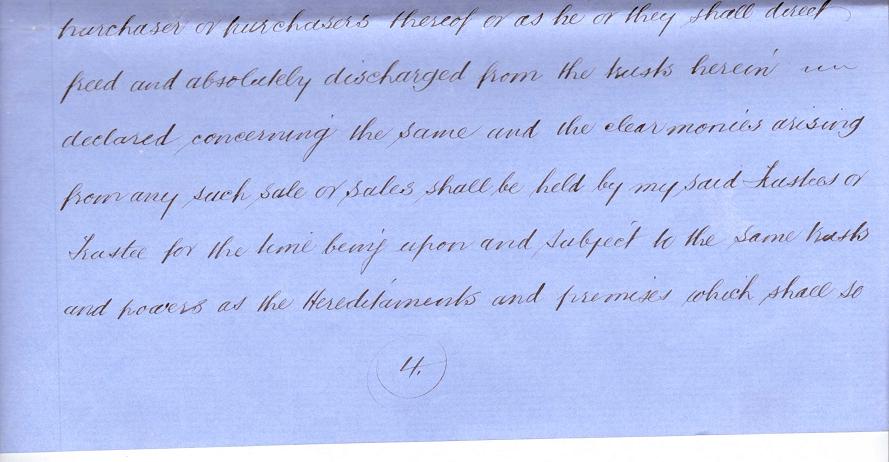 purchaser or purchasers thereof or as he or they shall direct
freed and absolutely discharged from the trusts herein
declared concerning the same and the clear monies arising
from any such sale or sales shall be held by my said Trustees or
Trustee for the time being upon and subject to the same trusts
and powers as the Hereditaments and premises which shall so
4.